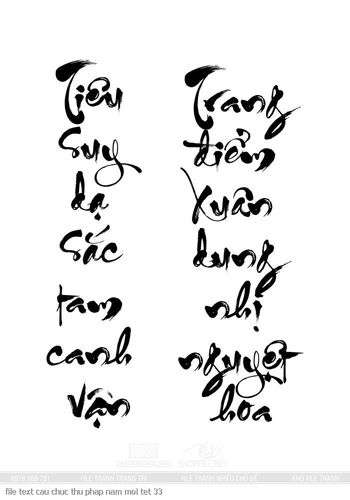 Tiêu
suy
dạ
sắc
tam
canh
vận
Trang
điểm
Xuân
dung
nhị
nguyệt
hoa
0976 998 781 FILE TRANH TRANG TRÍ FILE TRANH NHIỀU CHỦ ĐỀ KHO FILE TRANH
file text cau chuc thu phap nam moi tet 33